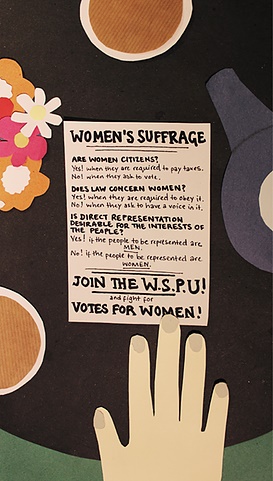 WOMEN'S SUFFRAGE
ARE WOMEN CITIZENS?
Yes! when they are required to pay taxes.
No! when they ask to vote.
DOES LAW CONCERN WOMEN?
Yes! when they are required to obey it.
No! when they ask to have a voice in it.
IS DIRECT REPRESENTATION
DESIRABLE FOR THE INTERESTS OF
THE PEOPLE?
Yes! if the people to be represented are
MEN.
No! if the people to be represented are
WOMEN.
JOIN THE W.S.P.U!
and fight for
VOTES FOR WOMEN!